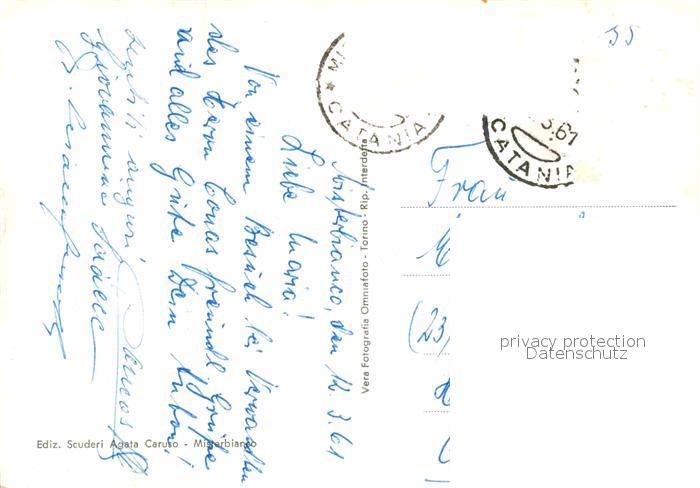 Misterbianco, den 12.3.61
Liebe Maria!
Von einem Besuch bei Verwandten
des Herrn Conas freundl. Grüße
und alles Gute Dein Anton!
auguri
Giovanna
Vera Fotografia Omniafoto - Torino - Rip. interdetta
Ediz. Scuderi Agata Caruso - Misterbianco
CATANIA
3.61
CATANIA
35
Frau
(23)
privacy protection
Datenschutz